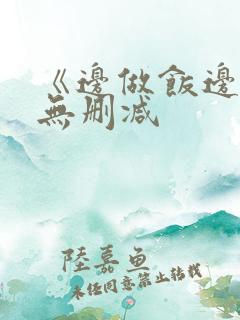 《邊做飯邊
無刪减
陸嘉鱼
未经同意禁止转载